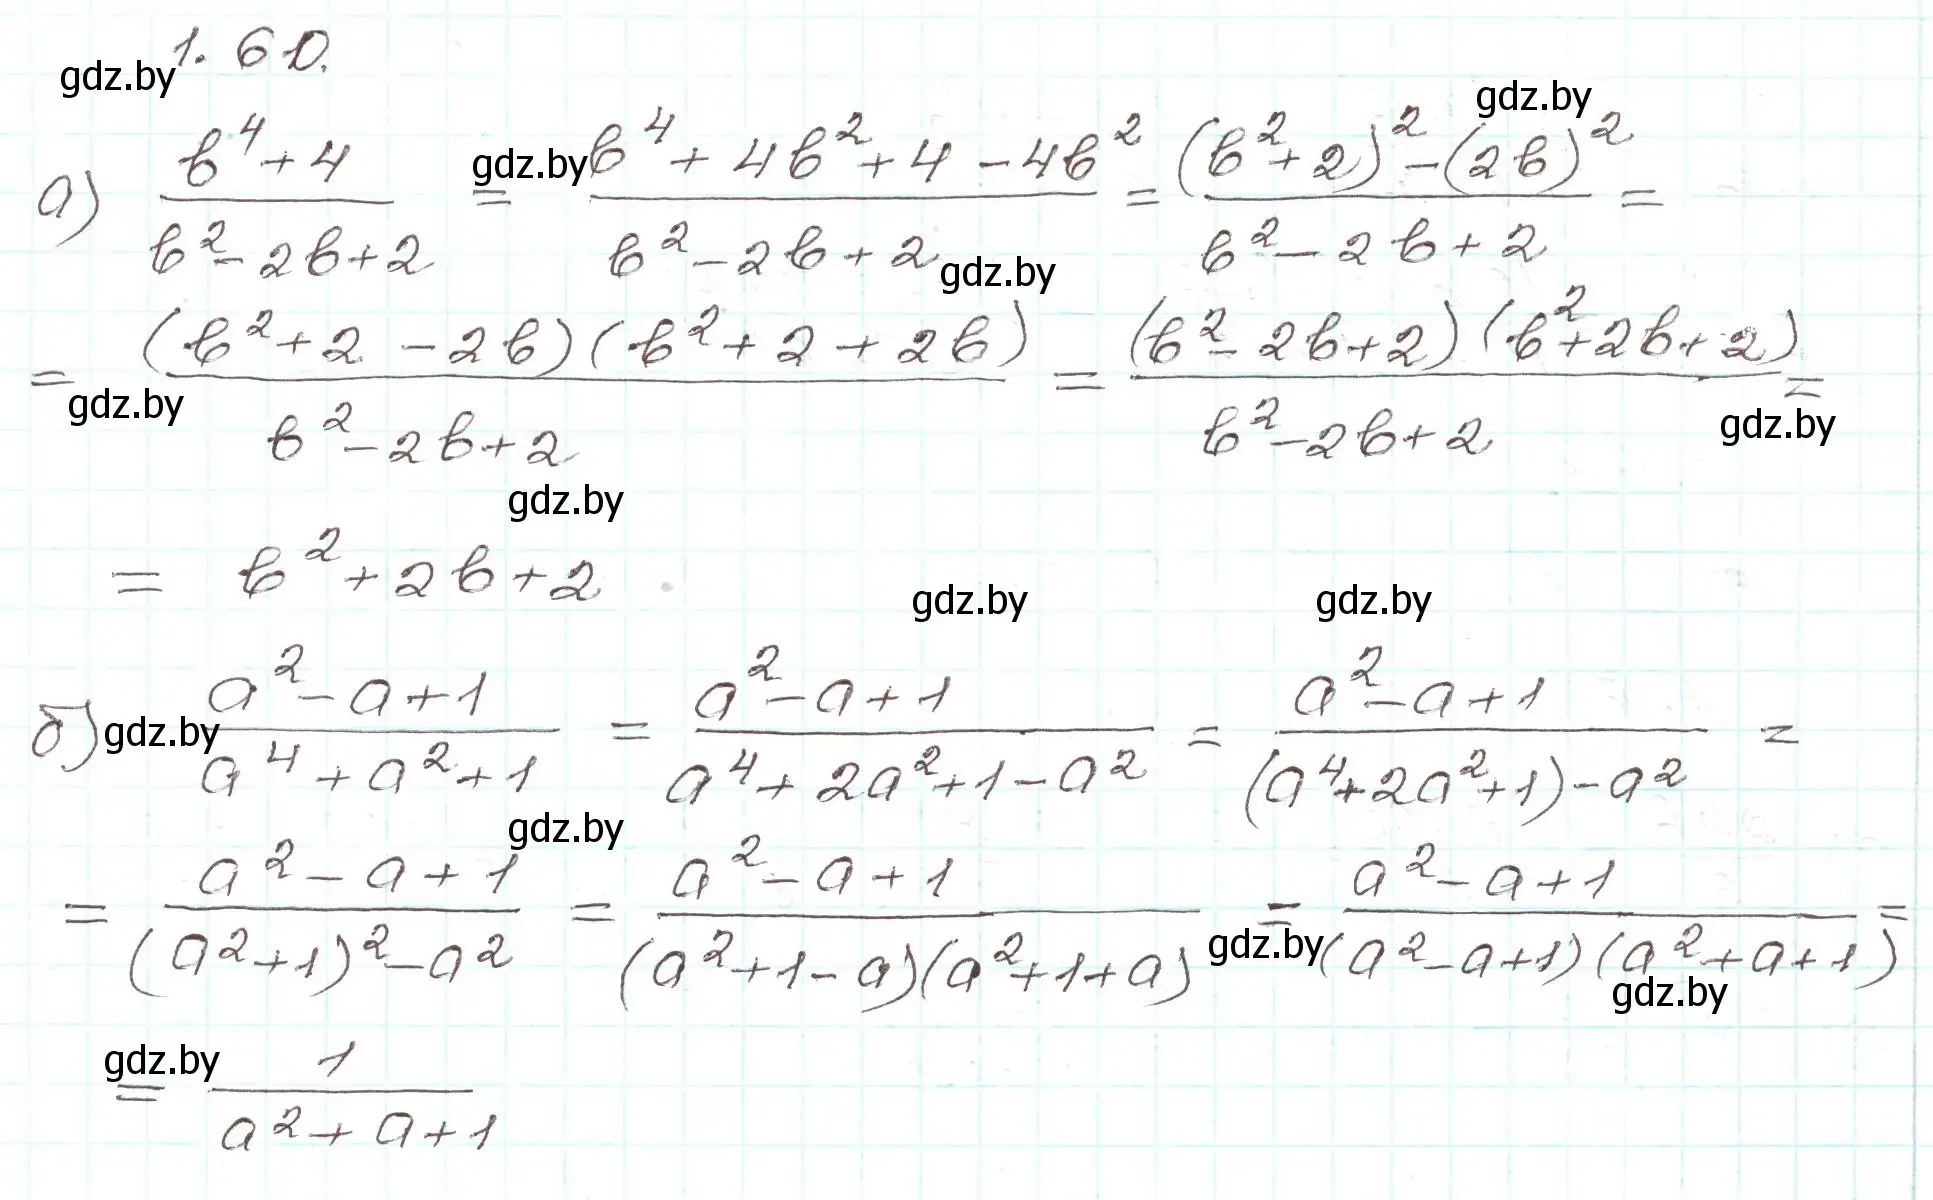 1.60.
gdz.by
gdz.by
а) (b^4+4)/(b^2-2b+2) = (b^4+4b^2+4-4b^2)/(b^2-2b+2) = ((b^2+2)^2-(2b)^2)/(b^2-2b+2) =
gdz.by
gdz.by
= ((b^2+2-2b)(b^2+2+2b))/(b^2-2b+2) = ((b^2-2b+2)(b^2+2b+2))/(b^2-2b+2) =
gdz.by
gdz.by
gdz.by
= b^2+2b+2
gdz.by
gdz.by
б) (a^2-a+1)/(a^4+a^2+1) = (a^2-a+1)/(a^4+2a^2+1-a^2) = (a^2-a+1)/((a^4+2a^2+1)-a^2) =
gdz.by
gdz.by
= (a^2-a+1)/((a^2+1)^2-a^2) = (a^2-a+1)/((a^2+1-a)(a^2+1+a)) = (a^2-a+1)/((a^2-a+1)(a^2+a+1)) =
gdz.by
gdz.by
gdz.by
= 1/(a^2+a+1)